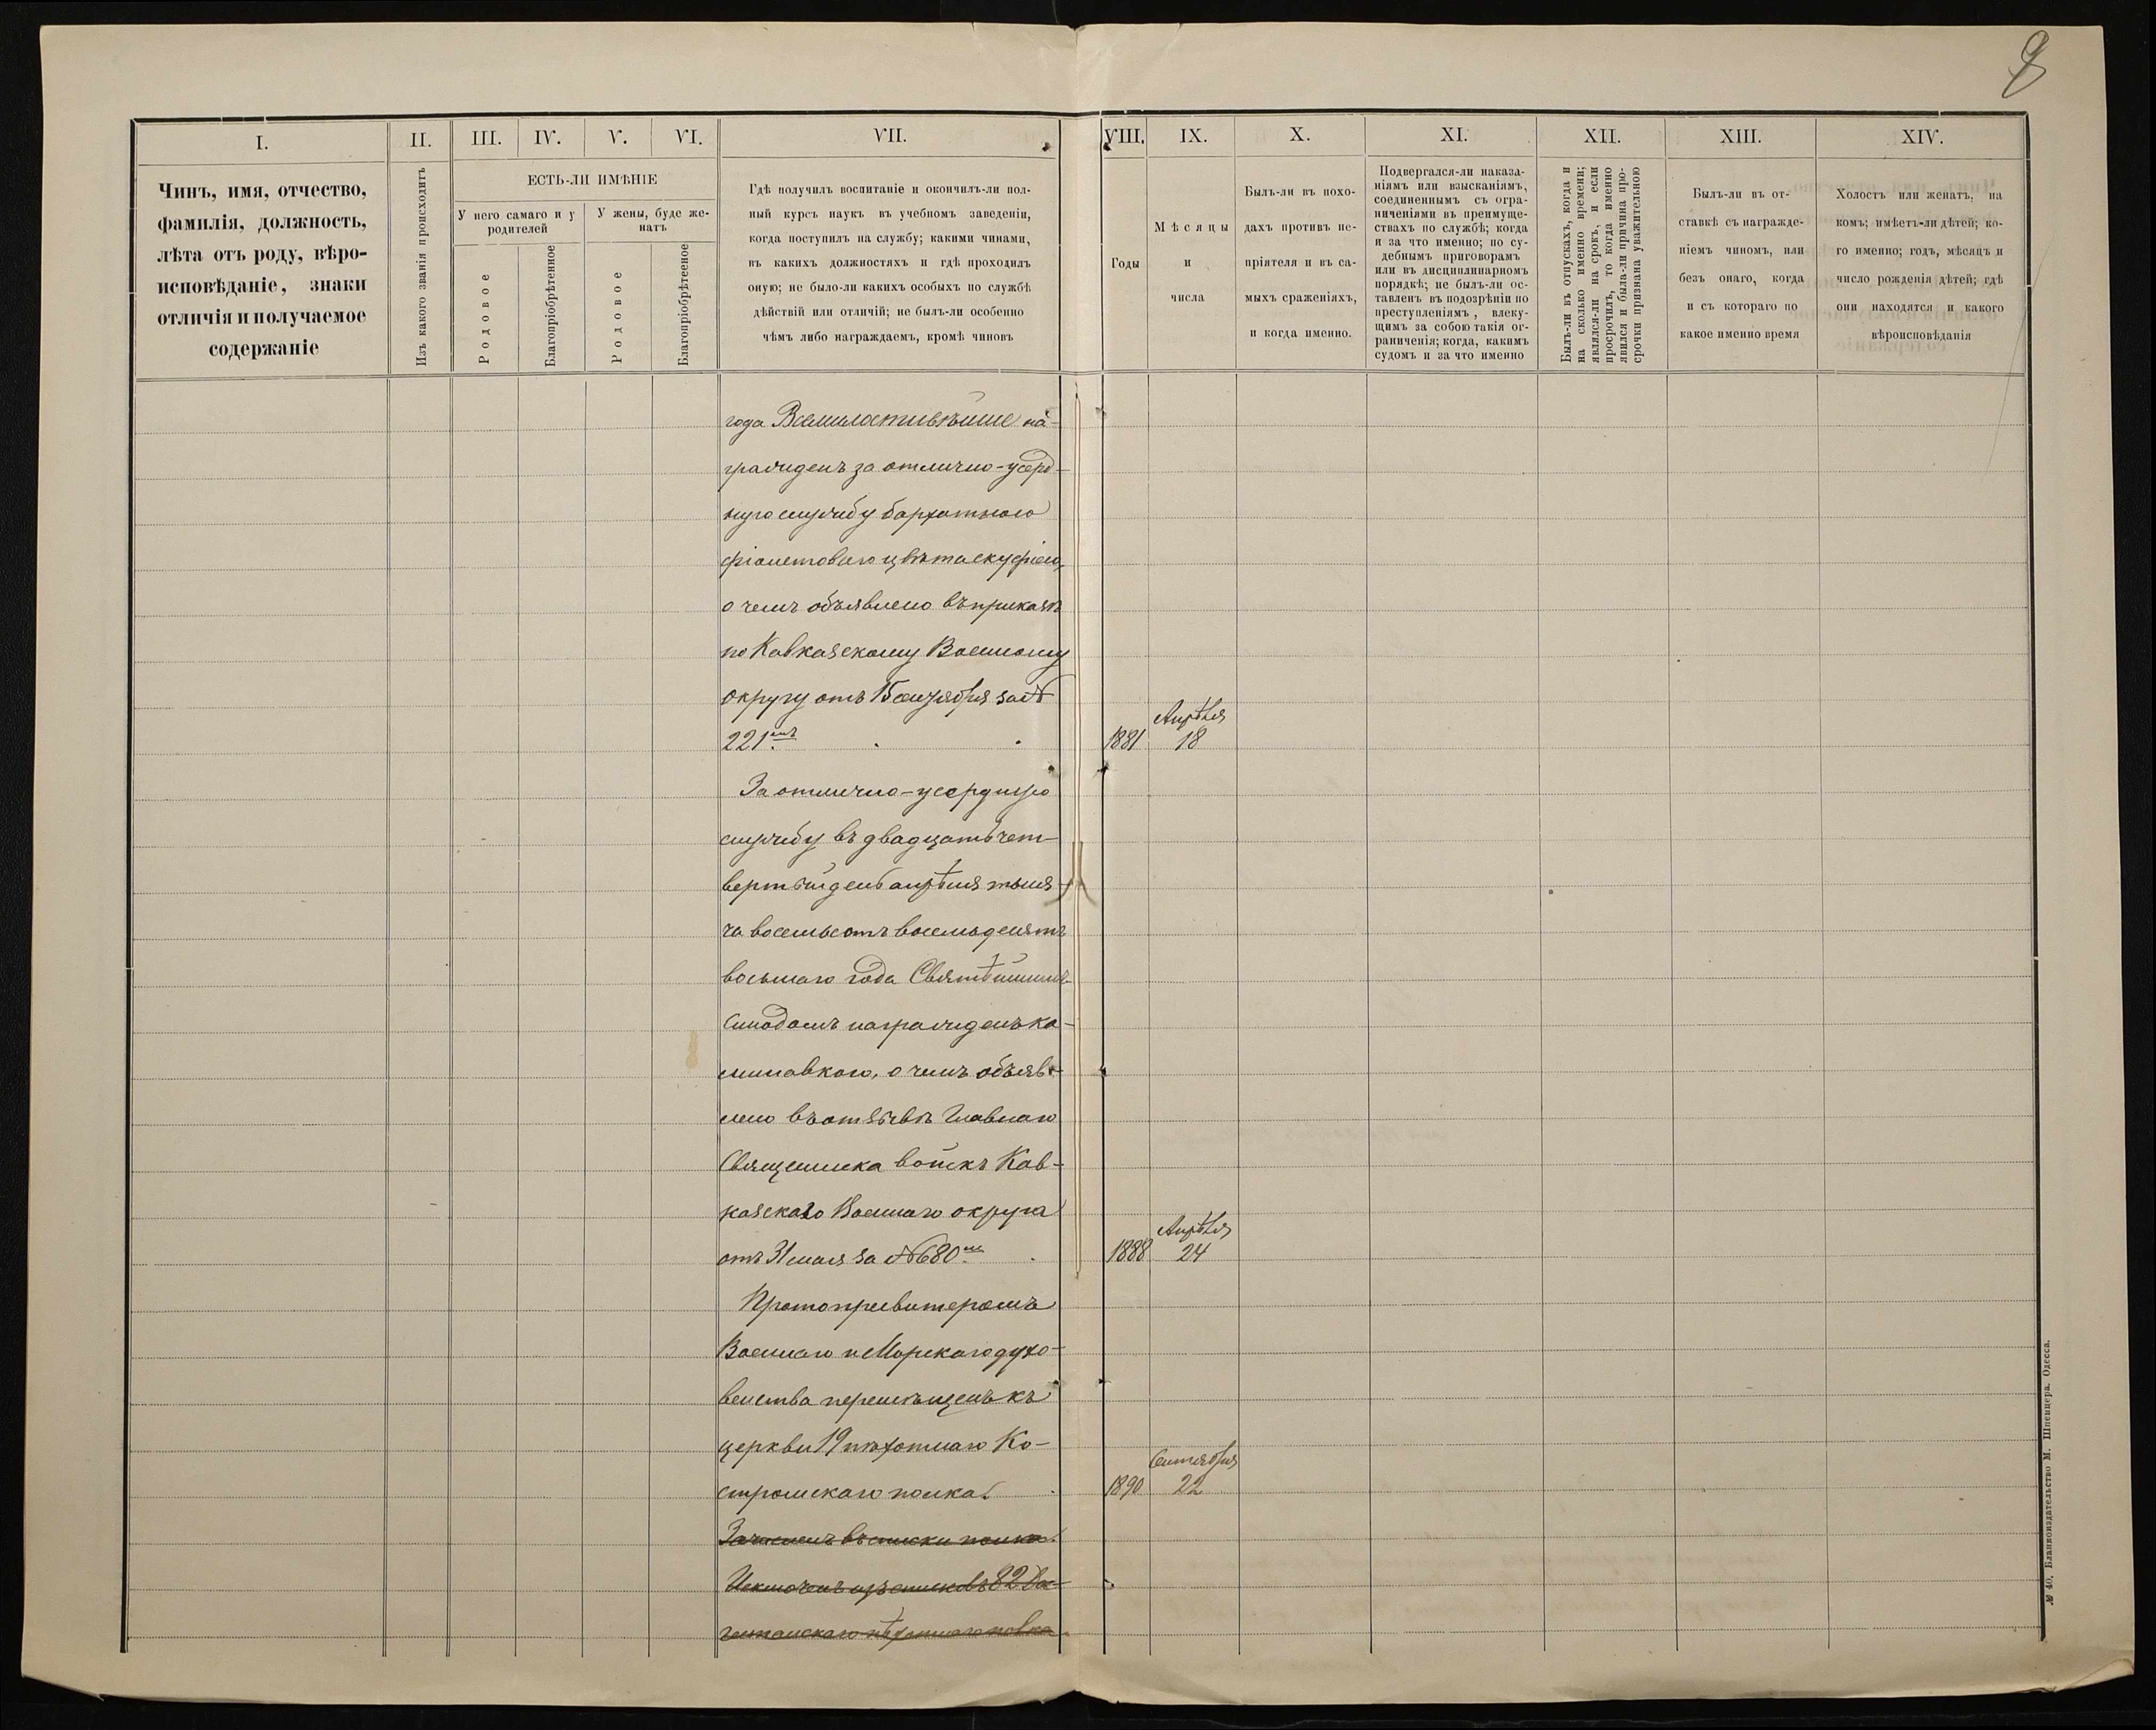 9
I.
II.
III.
IV.
V.
VI.
VII.
VIII.
IX.
X.
XI.
XII.
XIII.
XIV.
Чинъ, имя, отчество,
фамилія, должность,
лѣта отъ роду, вѣро-
исповѣданіе, знаки
отличія и получаемое
содержаніе
Изъ какого званія происходитъ
ЕСТЬ-ЛИ ИМѢНІЕ
У него самаго и у
родителей
У жены, буде же-
натъ
Родовое
Благопріобрѣтенное
Родовое
Благопріобрѣтенное
Гдѣ получилъ воспитаніе и окончилъ-ли пол-
ный курсъ наукъ въ учебномъ заведеніи,
когда поступилъ на службу; какими чинами,
въ какихъ должностяхъ и гдѣ проходилъ
оную; не было-ли какихъ особыхъ по службѣ
дѣйствій или отличій; не былъ-ли особенно
чѣмъ либо награждаемъ, кромѣ чиновъ
Годы
Мѣсяцы
и
числа
Былъ-ли въ похо-
дахъ противъ не-
пріятеля и въ са-
мыхъ сраженіяхъ,
и когда именно.
Подвергался-ли наказа-
ніямъ или взысканіямъ,
соединеннымъ съ огра-
ниченіями въ преимуще-
ствахъ по службѣ; когда
и за что именно; по су-
дебнымъ приговорамъ
или въ дисциплинарномъ
порядкѣ; не былъ-ли ос-
тавленъ въ подозрѣніи по
преступленіямъ, влеку-
щимъ за собою такія ог-
раниченія; когда, какимъ
судомъ и за что именно
Былъ-ли въ отпускахъ, когда и
на сколько именно времени;
являлся-ли на срокъ, и если
просрочилъ, то когда именно
явился и была-ли причина про-
срочки признана уважительною
Былъ-ли въ от-
ставкѣ съ награжде-
ніемъ чиномъ, или
безъ онаго, когда
и съ котораго по
какое именно время
Холостъ или женатъ, на
комъ; имѣетъ-ли дѣтей; ко-
го именно; годъ, мѣсяцъ и
число рожденія дѣтей; гдѣ
они находятся и какого
вѣроисповѣданія
года Всемилостивѣйше на-
гражденъ за отлично-усерд-
ную службу бархатною
фіолетоваго цвѣта скуфіею,
о чемъ объявлено въ приказѣ
по Кавказскому Военному
округу отъ 15 сентября за №
221мъ
1881 Апрѣля 18
За отлично-усердную
службу въ двадцать чет-
вертый день апрѣля тыся-
ча восемьсотъ восемьдесятъ
восьмаго года Святѣйшимъ
Синодомъ награжденъ ка-
милавкою, о чемъ объяв-
лено въ отзывѣ Главнаго
Священника войскъ Кав-
казскаго Военнаго округа
отъ 31 мая за № 680мъ
1888 Апрѣля 24
Протопресвитеромъ
Военнаго и Морскаго духо-
венства перемѣщенъ къ
церкви 19 пѣхотнаго Ко-
стромскаго полка.
1890 Сентября 22
Зачисленъ въ списки полка.
Исключенъ изъ списковъ 82 Да-
гестанскаго пѣхотнаго полка
№ 40. Бланкоиздательство М. Шпенцера. Одесса.